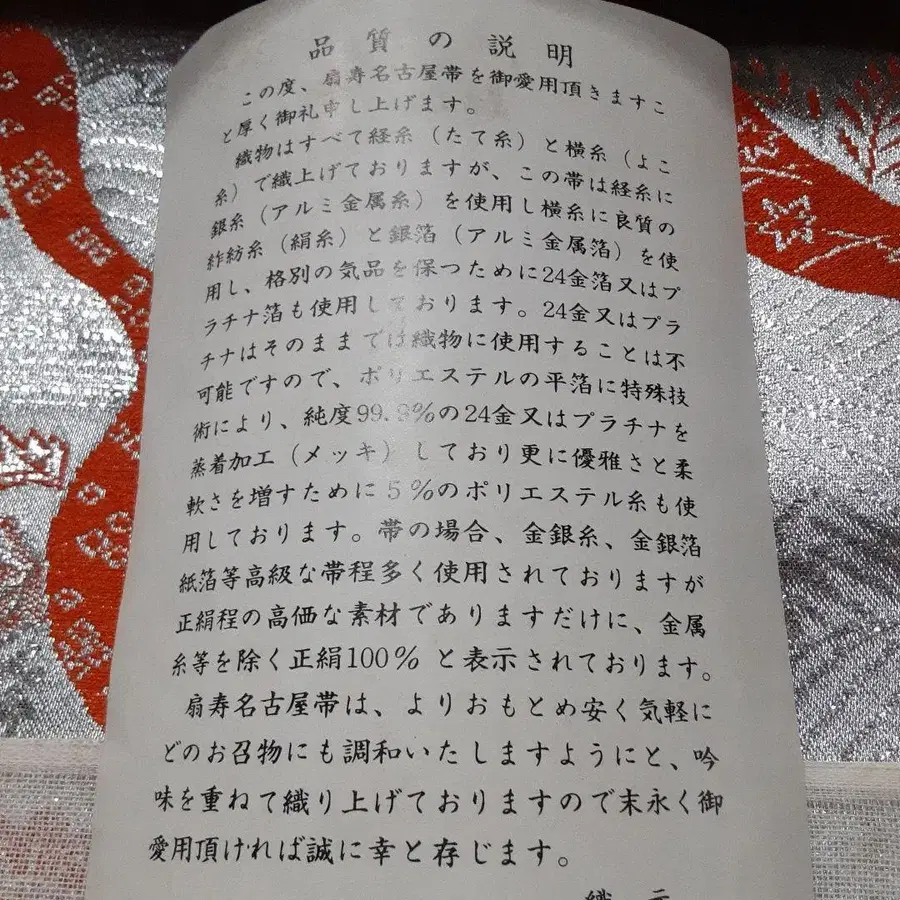 品質の説明
この度、扇寿名古屋帯を御愛用頂きますこ
と厚く御礼申し上げます。
織物はすべて経糸（たて糸）と横糸（よこ
糸）で織上げておりますが、この帯は経糸に
銀糸（アルミ金属糸）を使用し横糸に良質の
紬紡糸（絹糸）と銀箔（アルミ金属箔）を使
用し、格別の気品を保つために24金箔又はプ
ラチナ箔も使用しております。24金又はプラ
チナはそのままでは織物に使用することは不
可能ですので、ポリエステルの平箔に特殊技
術により、純度99.9%の24金又はプラチナを
蒸着加工（メッキ）しており更に優雅さと柔
軟さを増すために5%のポリエステル糸も使
用しております。帯の場合、金銀糸、金銀箔
紙箔等高級な帯程多く使用されておりますが
正絹程の高価な素材でありますだけに、金属
糸等を除く正絹100%と表示されております。
扇寿名古屋帯は、よりおもとめ安く気軽に
どのお召物にも調和いたしますようにと、吟
味を重ねて織り上げておりますので末永く御
愛用頂ければ誠に幸と存じます。
織元